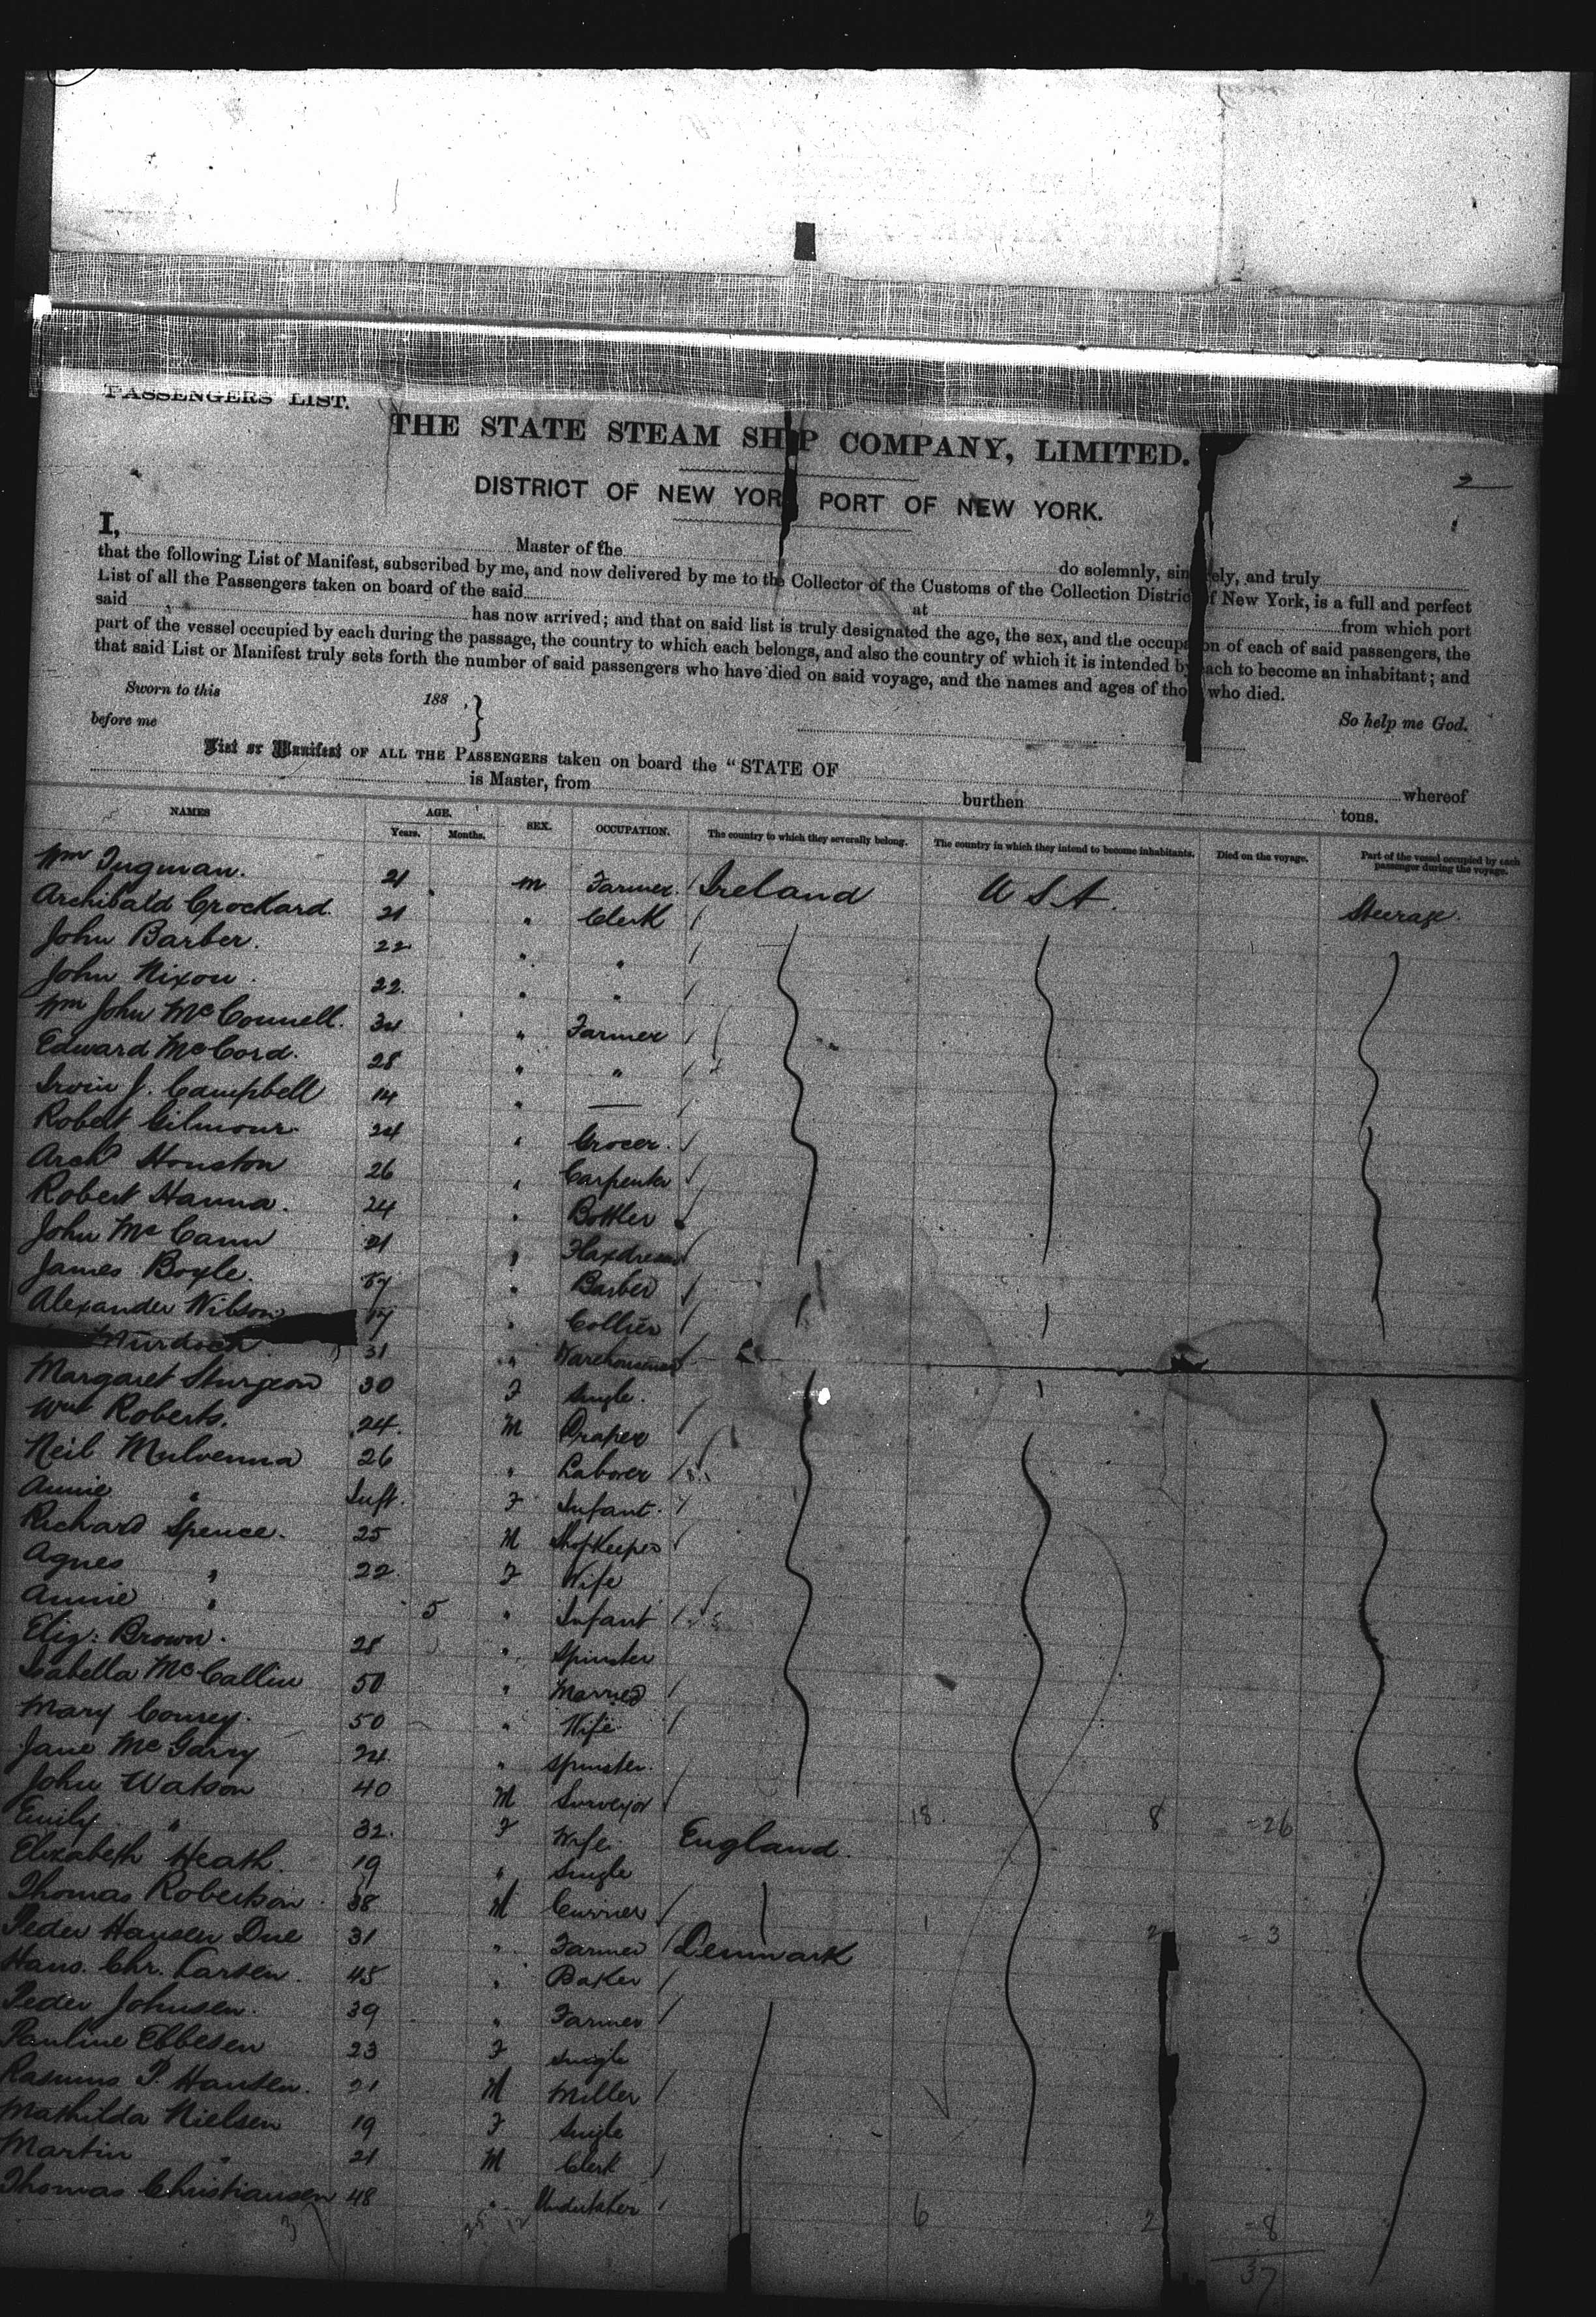 PASSENGERS LIST.
THE STATE STEAM SHIP COMPANY, LIMITED.
2
DISTRICT OF NEW YORK PORT OF NEW YORK.
I, Master of the do solemnly, sincerely, and truly
that the following List of Manifest, subscribed by me, and now delivered by me to the Collector of the Customs of the Collection District of New York, is a full and perfect
List of all the Passengers taken on board of the said at from which port
said has now arrived; and that on said list is truly designated the age, the sex, and the occupation of each of said passengers, the
part of the vessel occupied by each during the passage, the country to which each belongs, and also the country of which it is intended by each to become an inhabitant; and
that said List or Manifest truly sets forth the number of said passengers who have died on said voyage, and the names and ages of those who died.
Sworn to this 188 , So help me God.
before me
List or Manifest OF ALL THE PASSENGERS taken on board the "STATE OF whereof
is Master, from burthen tons.
NAMES AGE. Years. Months. SEX. OCCUPATION. The country to which they severally belong. The country in which they intend to become inhabitants. Died on the voyage. Part of the vessel occupied by each passenger during the voyage.
Wm 21 m Farmer Ireland U S A. Steerage
Archibald Crockard. 21 " Clerk
John Barber. 22 " "
John Nixon. 22. " "
Wm John McConnell. 34 " Farmer
Edward McCord. 28 " "
Irvin J. Campbell 14 " —
Robert Gilmour 24 " Grocer.
Archd Houston 26 " Carpenter
Robert Hanna. 24 " Bottler
John McCann 21 " Flaxdresser
James Boyle. " Barber
Alexander Wilson 17 " Collier
Murdoch 31 " Warehouseman
Margaret Sturgeon 30 F Single.
Wm Roberts. 24. M Draper
Neil Mulvenna 26 " Laborer
Annie " Inft. F Infant.
Richard Spence. 25 M Shopkeeper
Agnes " 22. F Wife
Annie " 5 " Infant
Eliz: Brown. 28 " Spinster
Isabella McCallin 50 " Married
Mary Coursey. 50 " Wife
Jane McGarry 24 " Spinster.
John Watson 40 M Surveyor
Emily " 32. F Wife. England. 18 8 =26
Elizabeth Heath. 19 " Single
Thomas Robertson 38 M Currier
Peder Hansen Due 31 " Farmer Denmark 1 2 =3
Hans. Chr. Larsen. 45 " Baker
Peder Johnsen. 39 " Farmer
Pauline Ebbesen 23 F Single
Rasmus P. Hansen. 21 M Miller
Mathilda Nielsen 19 F Single
Martin " 21 M Clerk
Thomas Christiansen 48 " Undertaker
6 2 =8
37